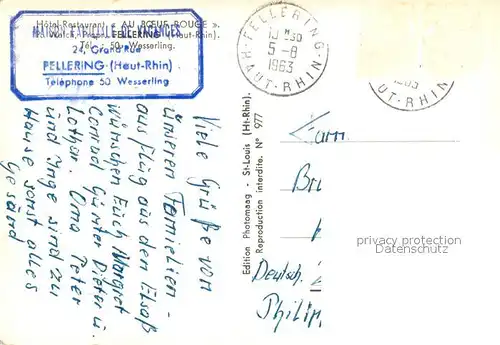 Hôtel-Restaurant « AU BŒUF ROUGE »
FELLERING (Haut-Rhin).
Tél. 50 - Wesserling.
MAISON FAMILIALE DE VACANCES
2, Grand'Rue
FELLERING (Haut-Rhin)
Téléphone 50 Wesserling
FELLERING
HAUT-RHIN
5-8
1963
1963
HAUT-RHIN
Viele Grüße von
unserem Familien-
ausflug aus dem Elsaß
wünschen Euch Margret
Conrad Günter Dieter u.
Lothar. Oma Peter
und Inge sind zu
Hause sonst alles
gesund
Edition Photomaag - St-Louis (Ht-Rhin).
Reproduction interdite. N° 977
Fam.
Br
Deutsch.
Philip
privacy protection
Datenschutz